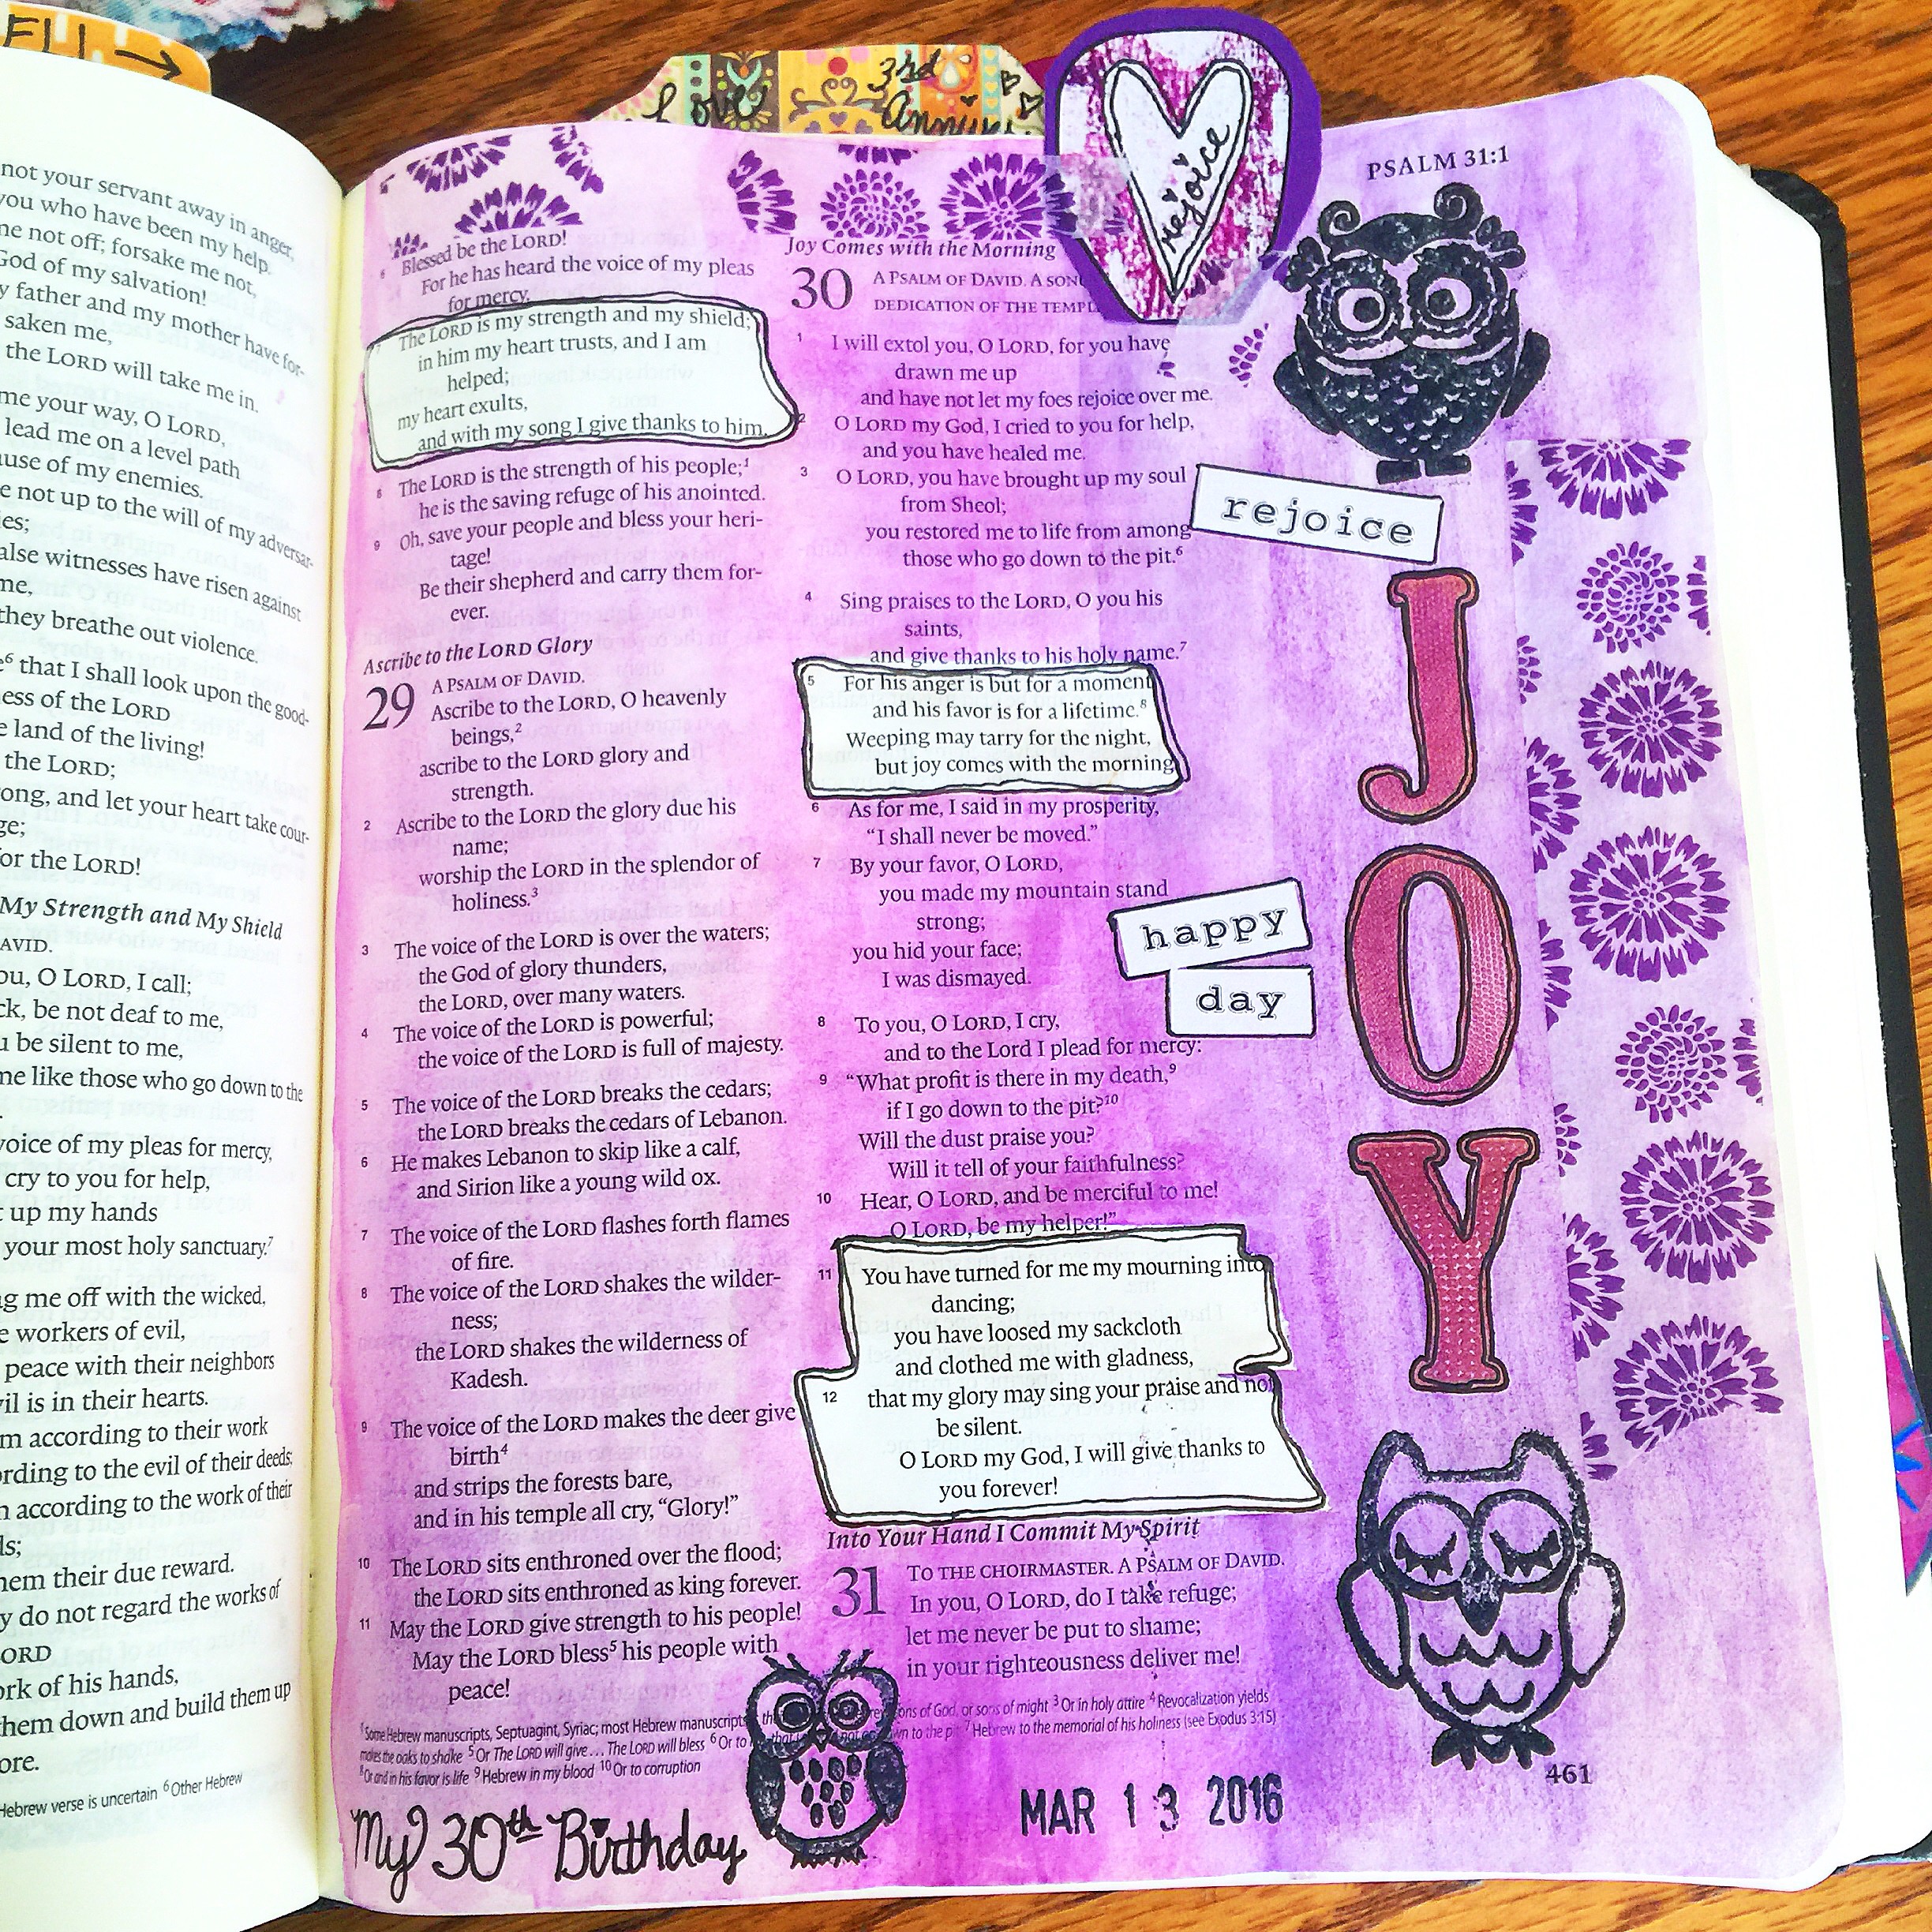 ELL →
Love
3rd
Anniv
rejoice
PSALM 31:1
not your servant away in anger,
you who have been my help.
me not off; forsake me not,
God of my salvation!
y father and my mother have for-
saken me,
the LORD will take me in.
me your way, O LORD,
lead me on a level path
use of my enemies.
e not up to the will of my adversar-
ies;
alse witnesses have risen against
me,
they breathe out violence.
e⁶ that I shall look upon the good-
ness of the LORD
e land of the living!
the LORD;
ong, and let your heart take cour-
ge;
for the LORD!
My Strength and My Shield
AVID.
ou, O LORD, I call;
ck, be not deaf to me,
u be silent to me,
me like those who go down to the
voice of my pleas for mercy,
cry to you for help,
t up my hands
your most holy sanctuary.⁷
ag me off with the wicked,
e workers of evil,
peace with their neighbors
vil is in their hearts.
m according to their work
rding to the evil of their deeds;
m according to the work of their
ds;
hem their due reward.
y do not regard the works of
ORD
ork of his hands,
hem down and build them up
ore.
Hebrew verse is uncertain ⁶ Other Hebrew
6 Blessed be the LORD!
For he has heard the voice of my pleas
for mercy.
7 The LORD is my strength and my shield;
in him my heart trusts, and I am
helped;
my heart exults,
and with my song I give thanks to him.
8 The LORD is the strength of his people;¹
he is the saving refuge of his anointed.
9 Oh, save your people and bless your heri-
tage!
Be their shepherd and carry them for-
ever.
Ascribe to the LORD Glory
29 A PSALM OF DAVID.
Ascribe to the LORD, O heavenly
beings,²
ascribe to the LORD glory and
strength.
2 Ascribe to the LORD the glory due his
name;
worship the LORD in the splendor of
holiness.³
3 The voice of the LORD is over the waters;
the God of glory thunders,
the LORD, over many waters.
4 The voice of the LORD is powerful;
the voice of the LORD is full of majesty.
5 The voice of the LORD breaks the cedars;
the LORD breaks the cedars of Lebanon.
6 He makes Lebanon to skip like a calf,
and Sirion like a young wild ox.
7 The voice of the LORD flashes forth flames
of fire.
8 The voice of the LORD shakes the wilder-
ness;
the LORD shakes the wilderness of
Kadesh.
9 The voice of the LORD makes the deer give
birth⁴
and strips the forests bare,
and in his temple all cry, "Glory!"
10 The LORD sits enthroned over the flood;
the LORD sits enthroned as king forever.
11 May the LORD give strength to his people!
May the LORD bless⁵ his people with
peace!
Joy Comes with the Morning
30 A PSALM OF DAVID. A SON
DEDICATION OF THE TEMPL
1 I will extol you, O LORD, for you have
drawn me up
and have not let my foes rejoice over me.
2 O LORD my God, I cried to you for help,
and you have healed me.
3 O LORD, you have brought up my soul
from Sheol;
you restored me to life from among
those who go down to the pit.⁶
4 Sing praises to the LORD, O you his
saints,
and give thanks to his holy name.⁷
5 For his anger is but for a moment
and his favor is for a lifetime.⁸
Weeping may tarry for the night,
but joy comes with the morning
6 As for me, I said in my prosperity,
"I shall never be moved."
7 By your favor, O LORD,
you made my mountain stand
strong;
you hid your face;
I was dismayed.
8 To you, O LORD, I cry,
and to the Lord I plead for mercy:
9 "What profit is there in my death,⁹
if I go down to the pit?¹⁰
Will the dust praise you?
Will it tell of your faithfulness?
10 Hear, O LORD, and be merciful to me!
O LORD, be my helper!"
11 You have turned for me my mourning into
dancing;
you have loosed my sackcloth
and clothed me with gladness,
12 that my glory may sing your praise and not
be silent.
O LORD my God, I will give thanks to
you forever!
Into Your Hand I Commit My Spirit
31 TO THE CHOIRMASTER. A PSALM OF DAVID.
In you, O LORD, do I take refuge;
let me never be put to shame;
in your righteousness deliver me!
rejoice
JOY
happy
day
¹ Some Hebrew manuscripts, Septuagint, Syriac; most Hebrew manuscripts ons of God, or sons of might ³ Or in holy attire ⁴ Revocalization yields
makes the oaks to shake ⁵ Or The LORD will give … The LORD will bless ⁶ Or to wn to the pit ⁷ Hebrew to the memorial of his holiness (see Exodus 3:15)
⁸ Or and in his favor is life ⁹ Hebrew in my blood ¹⁰ Or to corruption
461
My 30th Birthday
MAR 13 2016